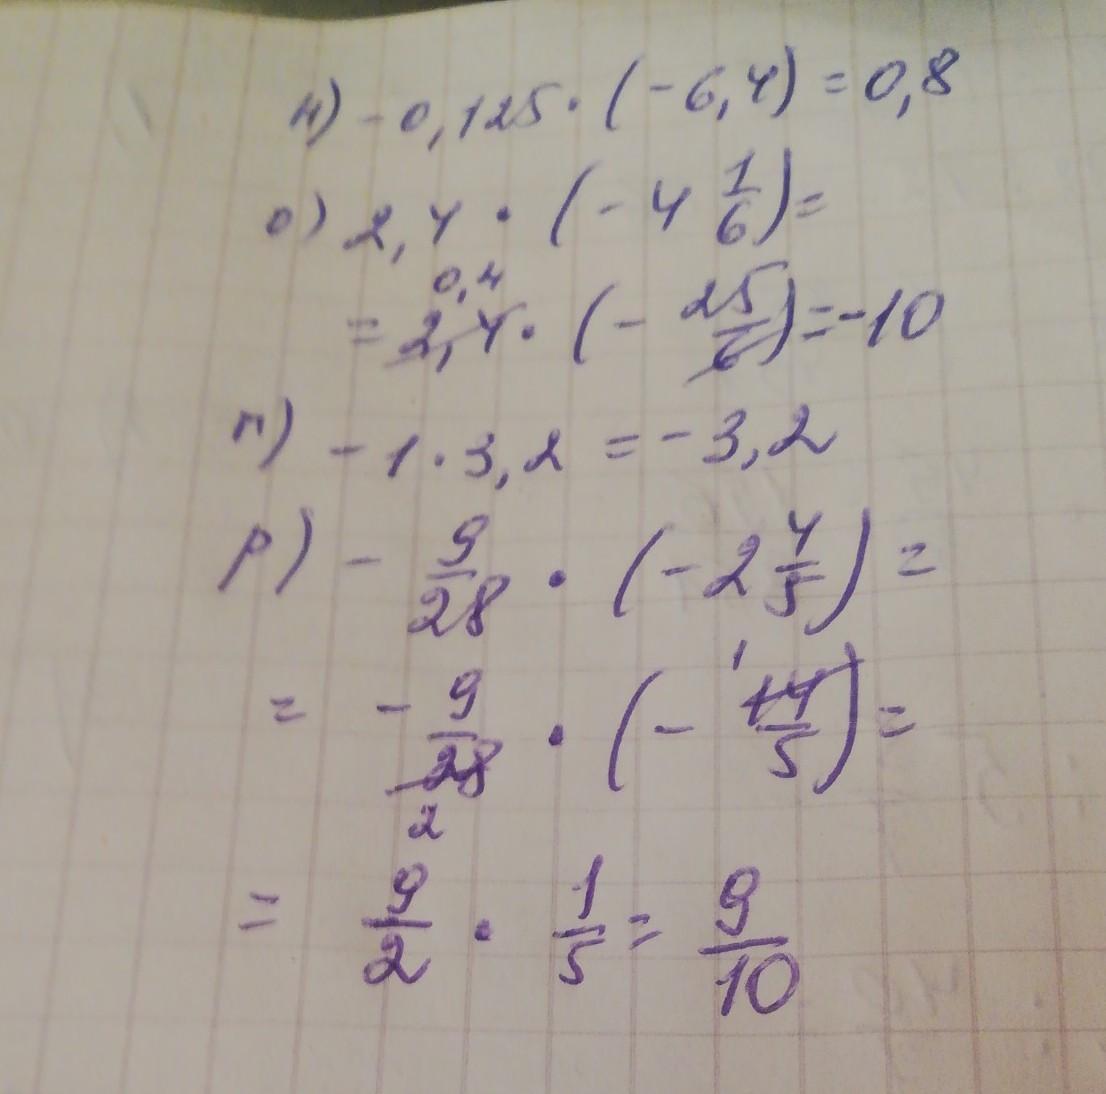 н) -0,125·(-6,4)=0,8
о) 2,4·(-4 1/6)=
0,4
=2,4·(-25/6)=-10
п) -1·3,2=-3,2
р) -9/28·(-2 4/5)=
1
= -9/28·(-14/5)=
2
= 9/2·1/5=9/10